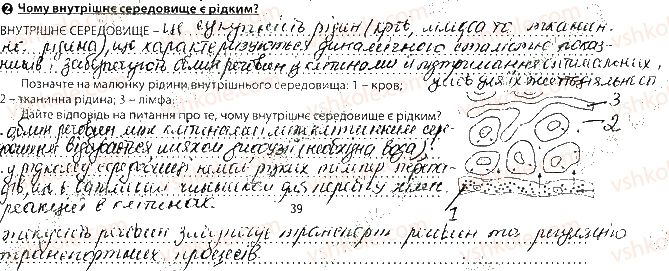 ❷ Чому внутрішнє середовище є рідким?
ВНУТРІШНЄ СЕРЕДОВИЩЕ – це сукупність рідин (кров, лімфа та тканин-
на рідина), що характеризується динамічною сталістю показ-
ників і забезпечують обмін речовин з клітинами й підтримання оптимальних
умов для їх життєдіяльності.
Позначте на малюнку рідини внутрішнього середовища: 1 – кров;
2 – тканинна рідина; 3 – лімфа.
3
2
Дайте відповідь на питання про те, чому внутрішнє середовище є рідким?
обмін речовин між клітинами і міжклітинним сере-
довищем відбувається шляхом дифузії (необхідна вода);
у рідкому середовищі немає різких температур
що є важливим чинником для перебігу хіміч.
реакцій в клітинах.
1
39
текучість речовин зумовлює транспорт речовин та регуляцію
транспортних процесів.